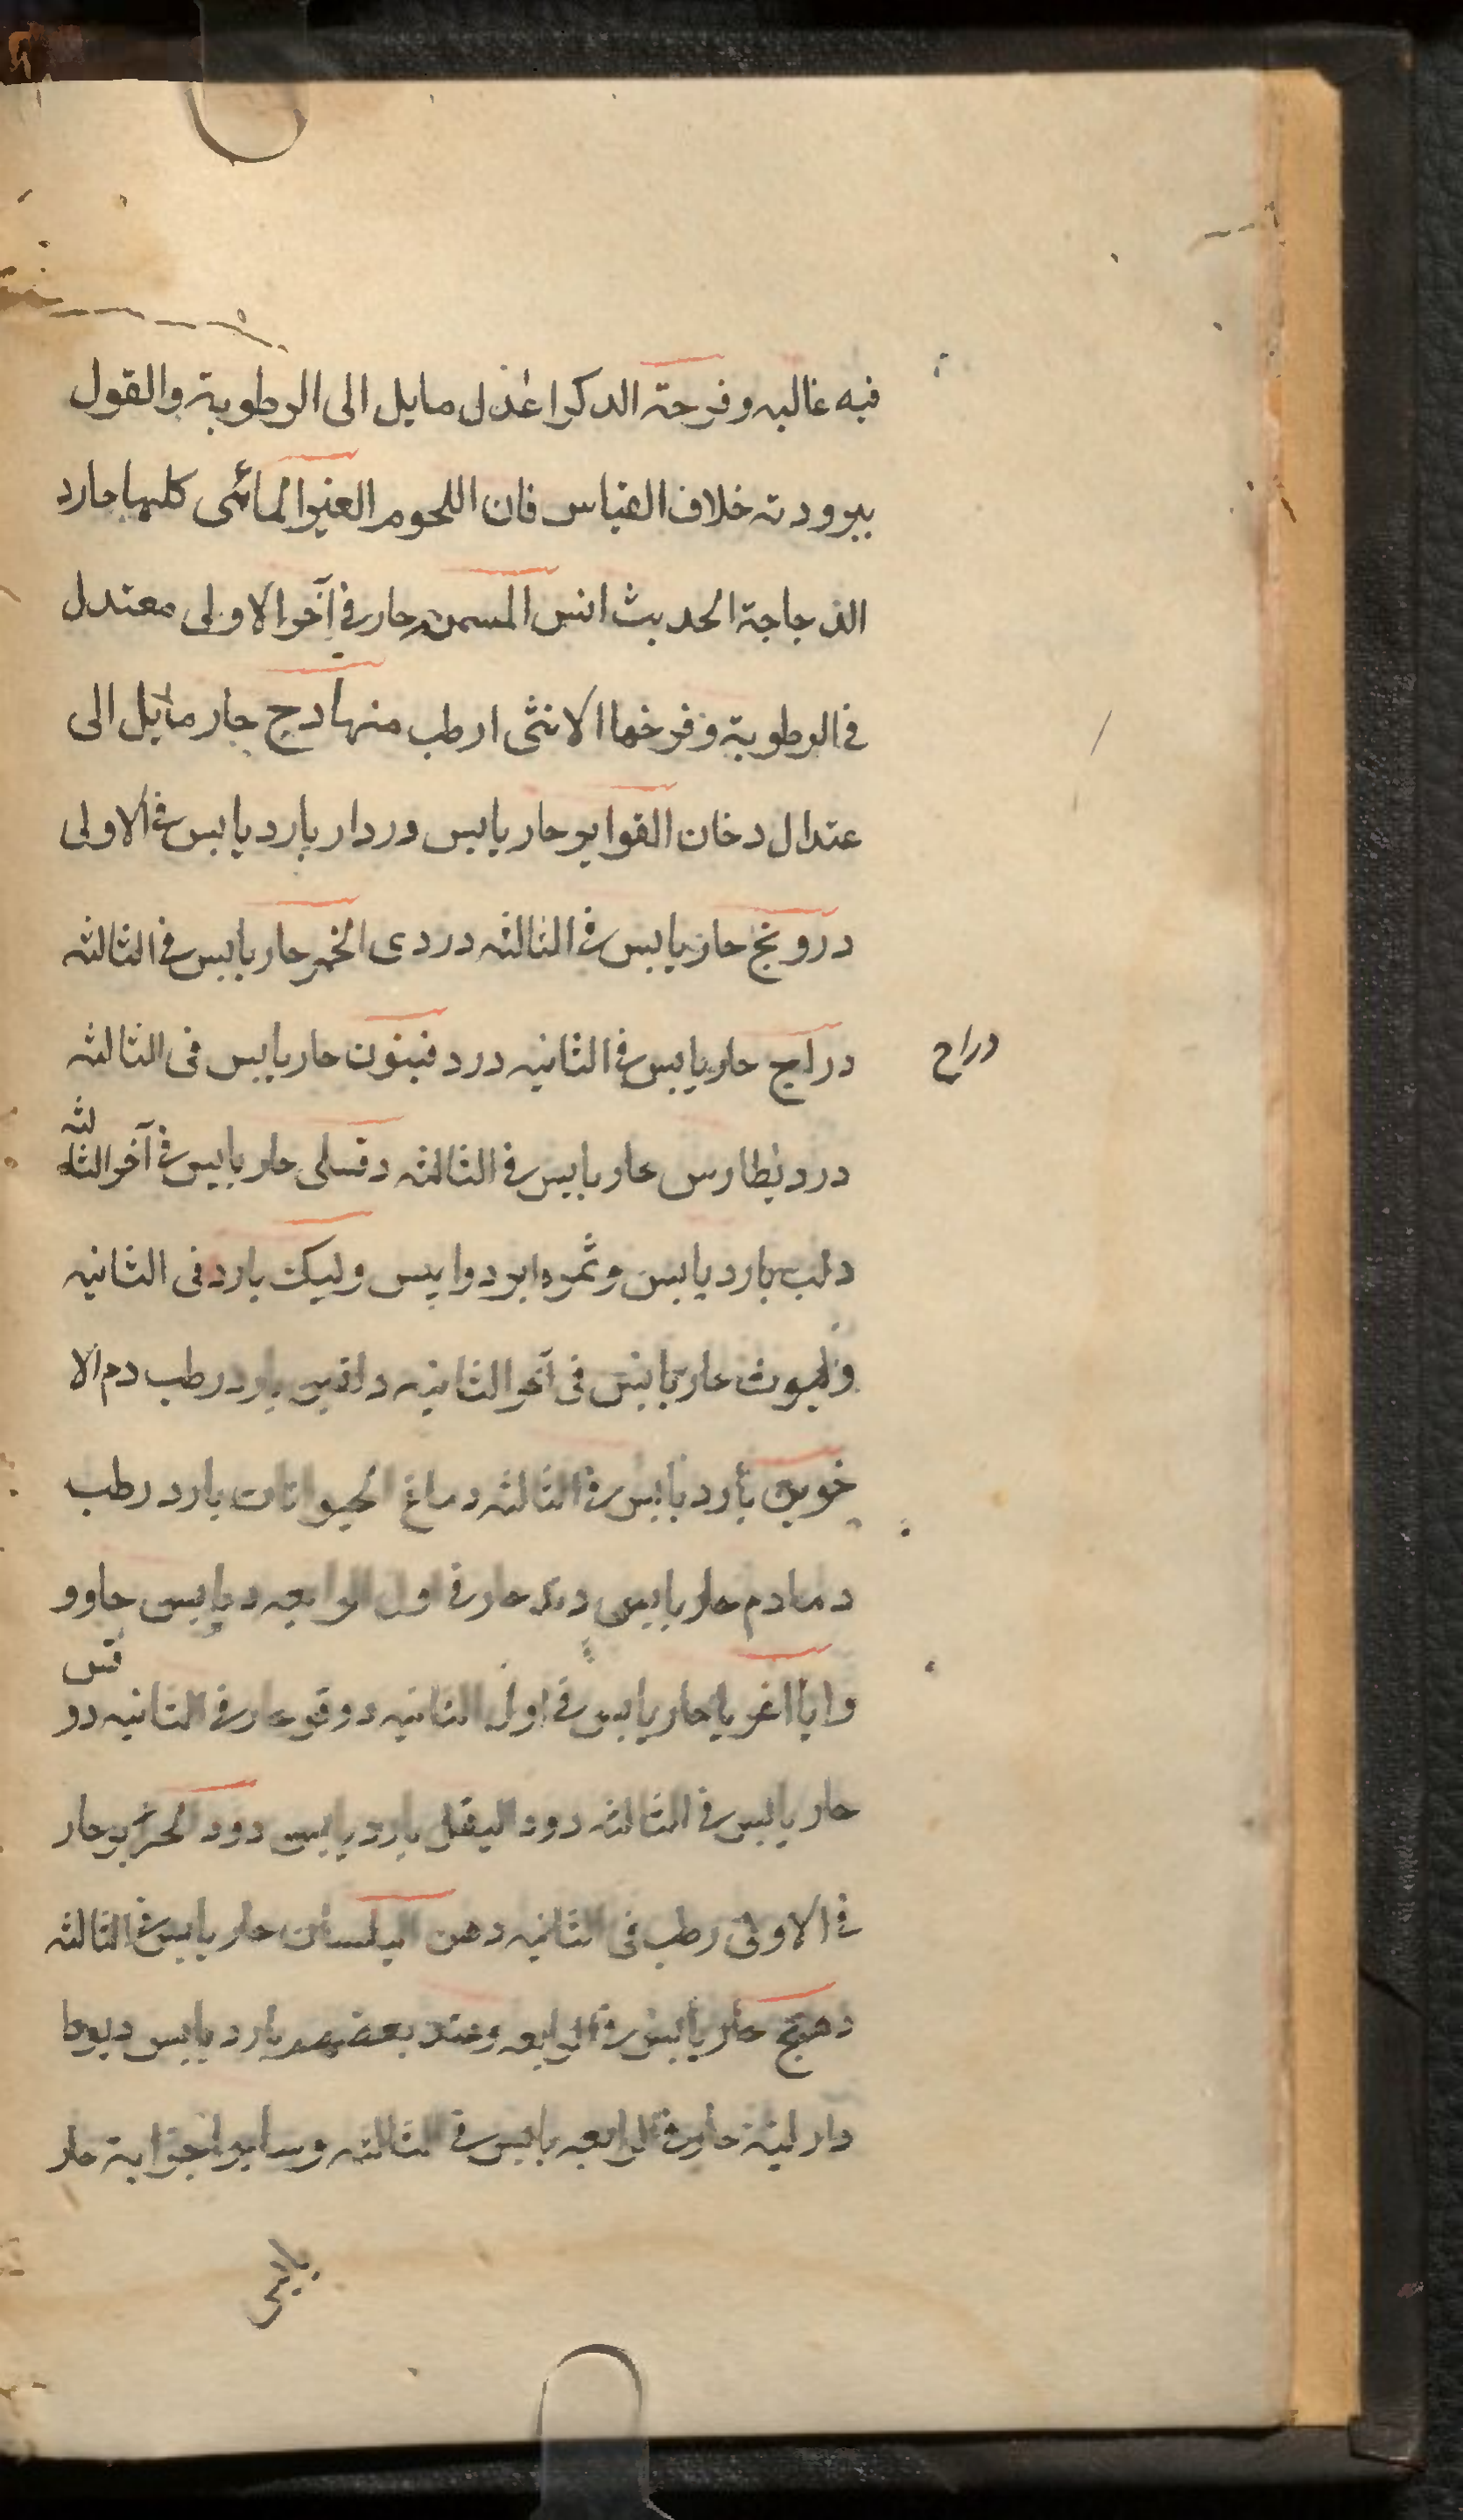 فيه غالبه وفرحة الدكر اعدل مايل الى الرطوبة والقول
ببرودته خلاف القياس فان اللحوم الغير المائى كلها حارد
الدجاجة الحديث السن المسمن حار في آخر الاولى معتدل
في الرطوبة وفرخها الانثى ارطب منها دج حار مائل الى
عتدال دخان القوابر حار يابس دردار بارد يابس في الاولى
درونج حار يابس في الثالثه دردى الخمر حار يابس في الثالثه
دراج
دراج حار يابس في الثانيه دردفينون حار يابس فى الثالثه
درد نطارس حار يابس في الثالثه دفسلى حار يابس في آخر الثالثه
دلب بارد يابس وثمره ابرد وايبس وليك بارد فى الثانيه
حار يابس فى آخر الثانيه بارد رطب دم الا
خوين بارد يابس في الثالثه دماغ الحيوانات بارد رطب
دمادم حار يابس دند حار في اول الرابعه ديابس جاوو
حار يابس في اول الثانيه دوقو حار في الثانيه دو قس
حار يابس في الثالثه دود البقل بارد يابس دود الحرير حار
في الاولى رطب فى الثانيه دهن البلسان حار يابس في الثالثه
دهنج حار يابس في الرابعه وعند بعضهم بارد يابس ديودا
دار لينة حار في الرابعه يابس في الثالثه وساير اجزاية حار